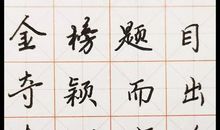 金榜题目
夺颖而出